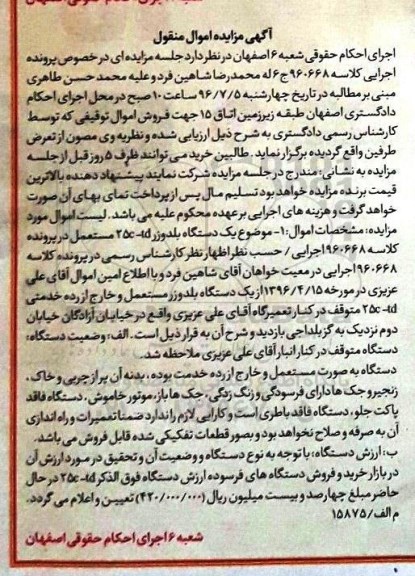 آگهی مزایده اموال منقول
اجرای احکام حقوقی شعبه ۶ اصفهان در نظر دارد جلسه مزایده ای در خصوص پرونده
اجرایی کلاسه ۹۶۰۶۶۸ ج ۶ له محمدرضا شاهین فرد و علیه محمد حسن طاهری
مبنی بر مطالبه در تاریخ چهارشنبه ۹۶/۷/۵ ساعت ۱۰ صبح در محل اجرای احکام
دادگستری اصفهان طبقه زیرزمین اتاق ۱۵ جهت فروش اموال توقیفی که توسط
کارشناس رسمی دادگستری به شرح ذیل ارزیابی شده و نظریه وی مصون از تعرض
طرفین واقع گردیده برگزار نماید. طالبین خرید می توانند ظرف ۵ روز قبل از جلسه
مزایده به نشانی: مندرج در جلسه مزایده شرکت نمایند پیشنهاد دهنده بالاترین
قیمت برنده مزایده خواهد بود تسلیم مال پس از پرداخت تمای بهای آن صورت
خواهد گرفت و هزینه های اجرایی بر عهده محکوم علیه می باشد. لیست اموال مورد
مزایده: مشخصات اموال: ۱- موضوع یک دستگاه بلدوزر ۲۵c-td مستعمل در پرونده
کلاسه ۹۶۰۶۶۸ اجرایی / حسب نظر اظهار نظر کارشناس رسمی در پرونده کلاسه
۹۶۰۶۶۸ اجرایی در معیت خواهان آقای شاهین فرد و با اطلاع امین اموال آقای علی
عزیزی در مورخه ۱۳۹۶/۴/۱۵ از یک دستگاه بلدوزر مستعمل و خارج از رده خدمتی
۲۵c-td متوقف در کنار تعمیرگاه آقای علی عزیزی واقع در خیابان آزادگان خیابان
دوم نزدیک به گز بلداجی بازدید و شرح آن به قرار ذیل است. الف: وضعیت دستگاه:
دستگاه متوقف در کنار انبار آقای علی عزیزی ملاحظه شد.
دستگاه به صورت مستعمل و خارج از رده خدمت بوده، بدنه آن پر از چربی و خاک،
زنجیر و جک ها دارای فرسودگی و زنگ زدگی، جک ها باز، موتور خاموش، دستگاه فاقد
پاکت جلو، دستگاه فاقد باطری است و کارایی لازم را ندارد ضمنا تعمیرات و راه اندازی
آن به صرفه و صلاح نخواهد بود و بصور قطعات تفکیکی شده قابل فروش می باشد.
ب: ارزش دستگاه: با توجه به نوع دستگاه و وضعیت آن و تحقیق در مورد ارزش آن
در بازار خرید و فروش دستگاه های فرسوده ارزش دستگاه فوق الذکر ۲۵c-td در حال
حاضر مبلغ چهارصد و بیست میلیون ریال (۴۲۰/۰۰۰/۰۰۰) تعیین و اعلام می گردد.
م الف/ ۱۵۸۷۵
شعبه ۶ اجرای احکام حقوقی اصفهان